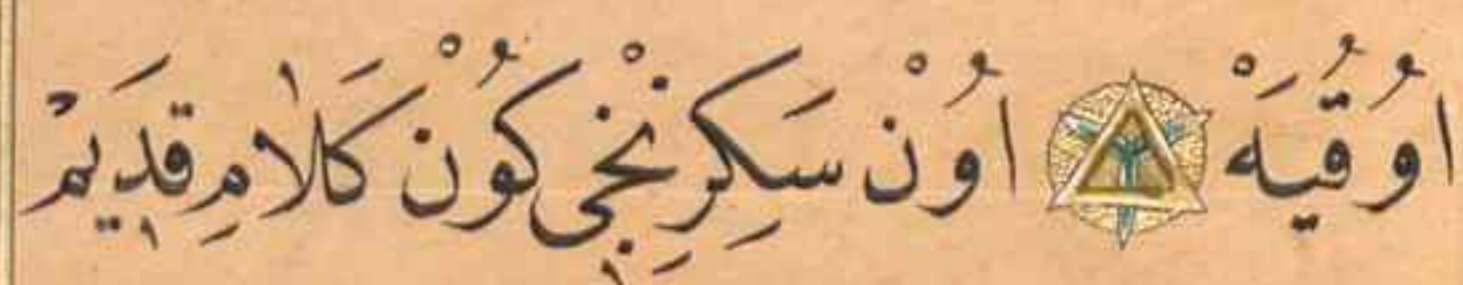 اُوقُيَهْ اُونْ سَكِزِنْجِى كُونْ كَلَامِ قَدِيمْ